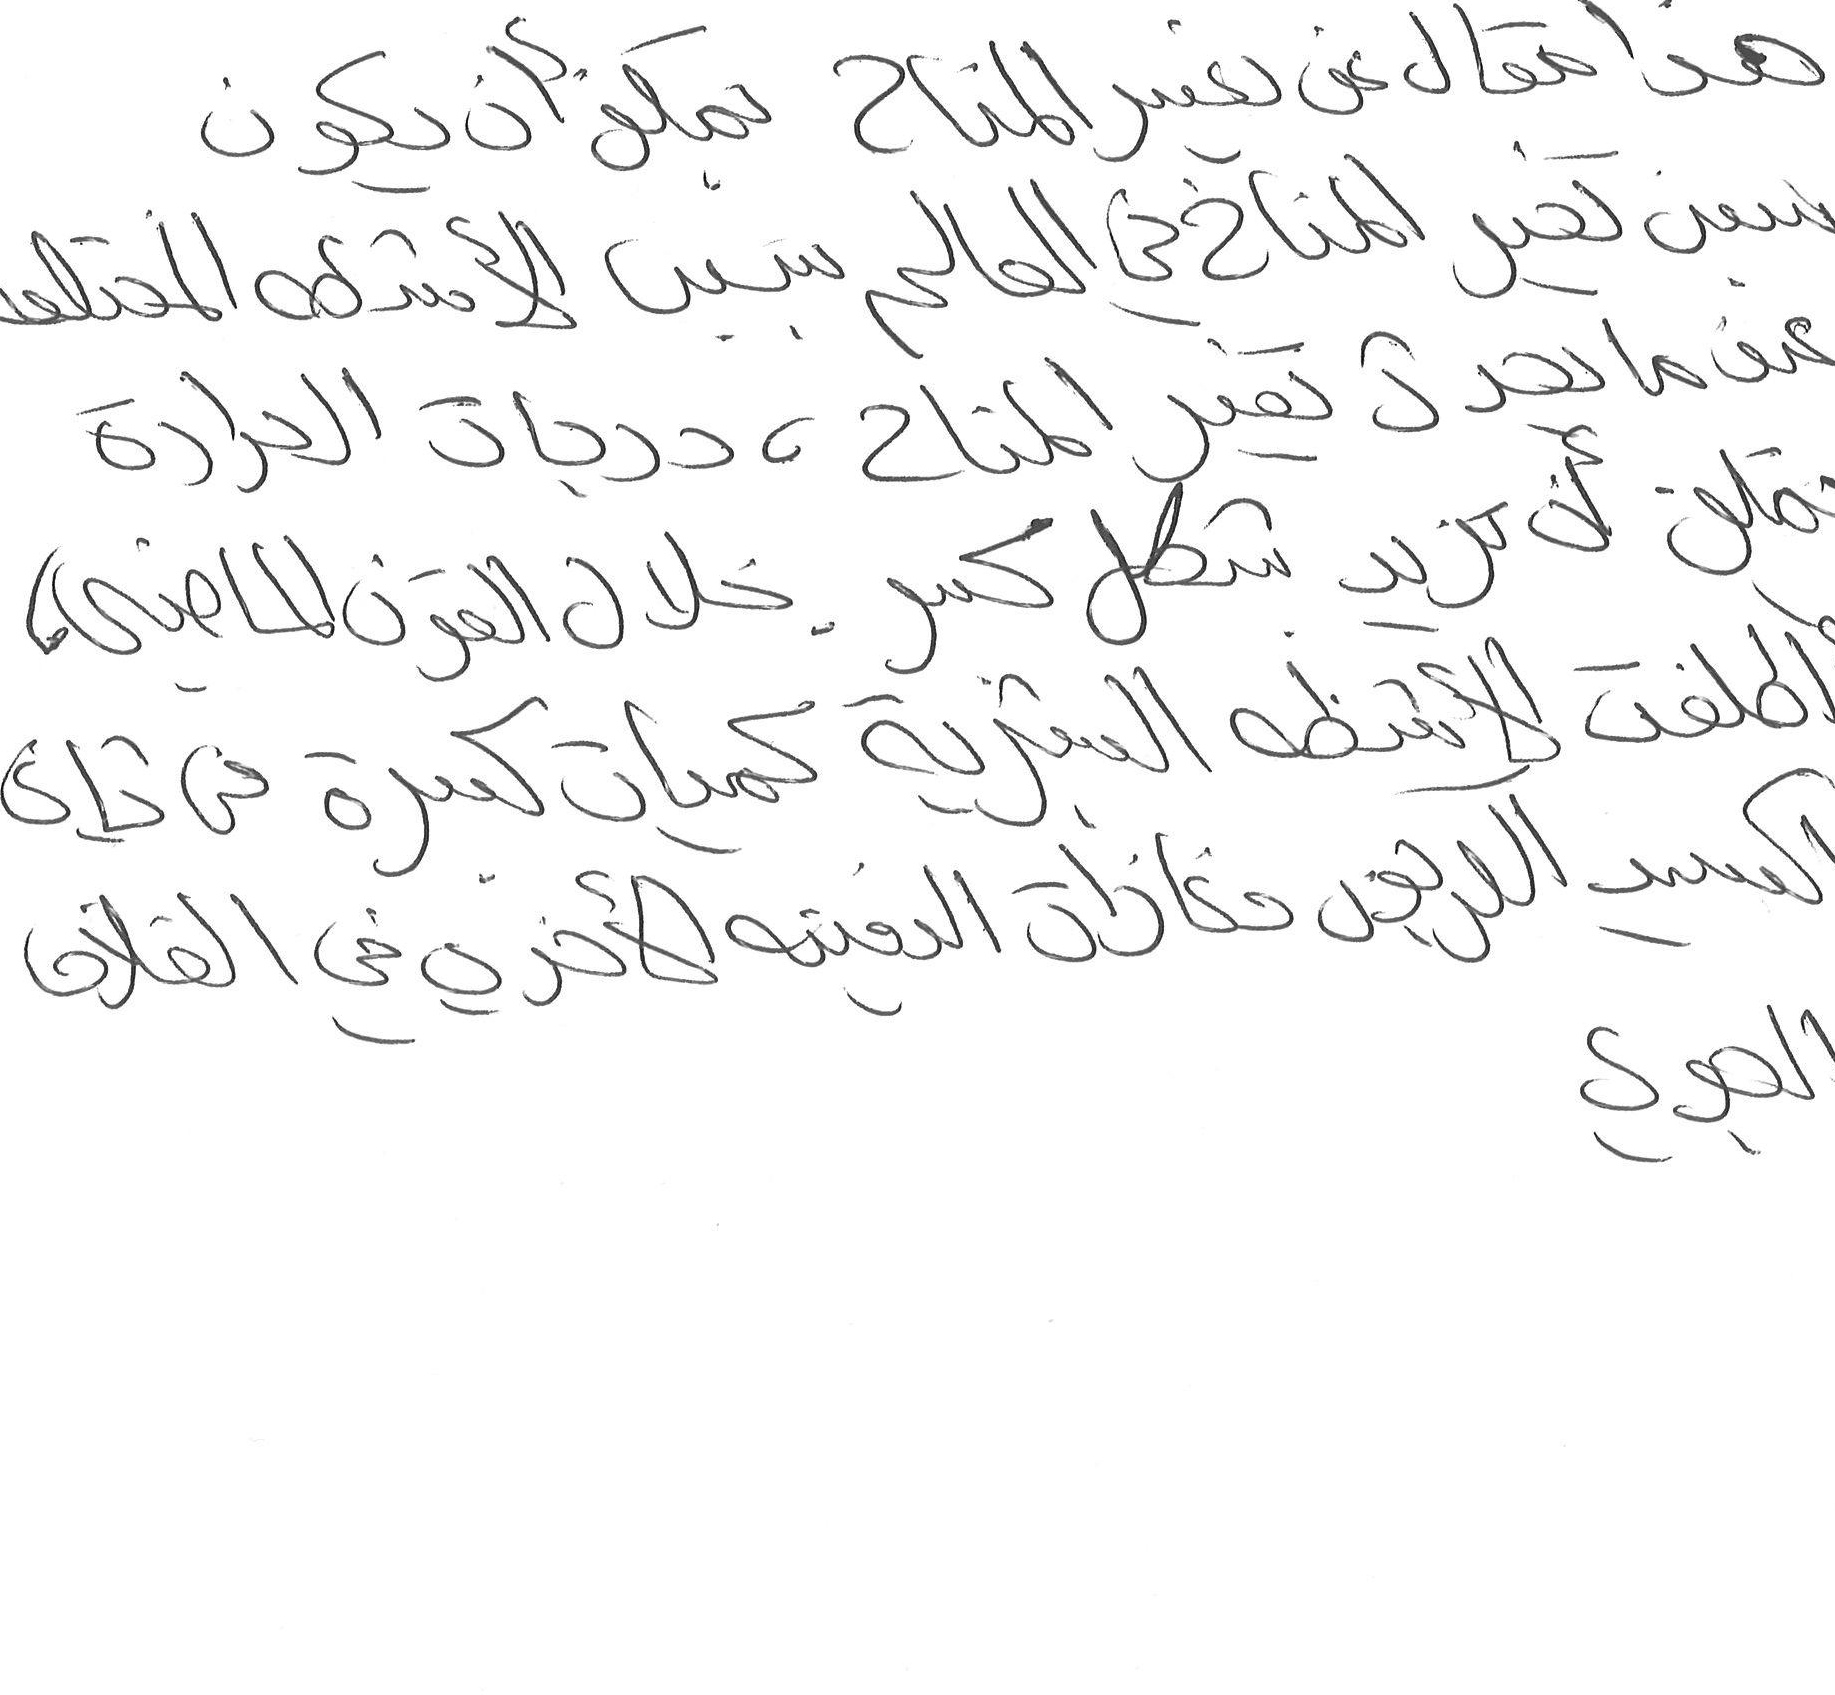 هذا مقال عن تغير المناخ يمكن أن يكون
سبب تغير المناخ في العالم بسبب الأنشطه المختلفه
عندما يحدث تغير المناخ، درجات الحرارة
يمكن أن تزيد بشكل كبير. خلال القرن الماضي،
أطلقت الأنشطه البشرية كميات كبيرة من ثاني
أكسيد الكربون وغازات الدفيئه الأخرى في الغلاف
الجوي